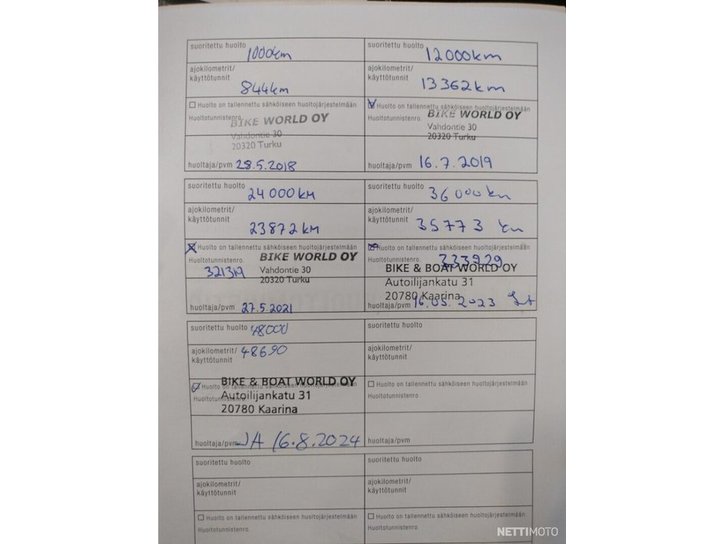 suoritettu huolto 1000km
ajokilometrit/
käyttötunnit 844km
☐ Huolto on tallennettu sähköiseen huoltojärjestelmään
Huoltotunnistenro.
BIKE WORLD OY
Vahdontie 30
20320 Turku
huoltaja/pvm 28.5.2018
suoritettu huolto 12000km
ajokilometrit/
käyttötunnit 13362km
☑ Huolto on tallennettu sähköiseen huoltojärjestelmään
Huoltotunnistenro.
BIKE WORLD OY
Vahdontie 30
20320 Turku
huoltaja/pvm 16.7.2019
suoritettu huolto 24000km
ajokilometrit/
käyttötunnit 23872km
☒ Huolto on tallennettu sähköiseen huoltojärjestelmään
Huoltotunnistenro. 321319
BIKE WORLD OY
Vahdontie 30
20320 Turku
huoltaja/pvm 27.5.2021
suoritettu huolto 36000km
ajokilometrit/
käyttötunnit 35773 km
☒ Huolto on tallennettu sähköiseen huoltojärjestelmään
Huoltotunnistenro. 333929
BIKE & BOAT WORLD OY
Autoilijankatu 31
20780 Kaarina
huoltaja/pvm 16.05.2023
suoritettu huolto 48000
ajokilometrit/ 48690
käyttötunnit
☑ Huolto on tallennettu sähköiseen huoltojärjestelmään
Huoltotunnistenro.
BIKE & BOAT WORLD OY
Autoilijankatu 31
20780 Kaarina
huoltaja/pvm JA 16.8.2024
suoritettu huolto
ajokilometrit/
käyttötunnit
☐ Huolto on tallennettu sähköiseen huoltojärjestelmään
Huoltotunnistenro.
huoltaja/pvm
suoritettu huolto
ajokilometrit/
käyttötunnit
☐ Huolto on tallennettu sähköiseen huoltojärjestelmään
Huoltotunnistenro.
suoritettu huolto
ajokilometrit/
käyttötunnit
☐ Huolto on tallennettu sähköiseen huoltojärjestelmään
Huoltotunnistenro.
NETTIMOTO